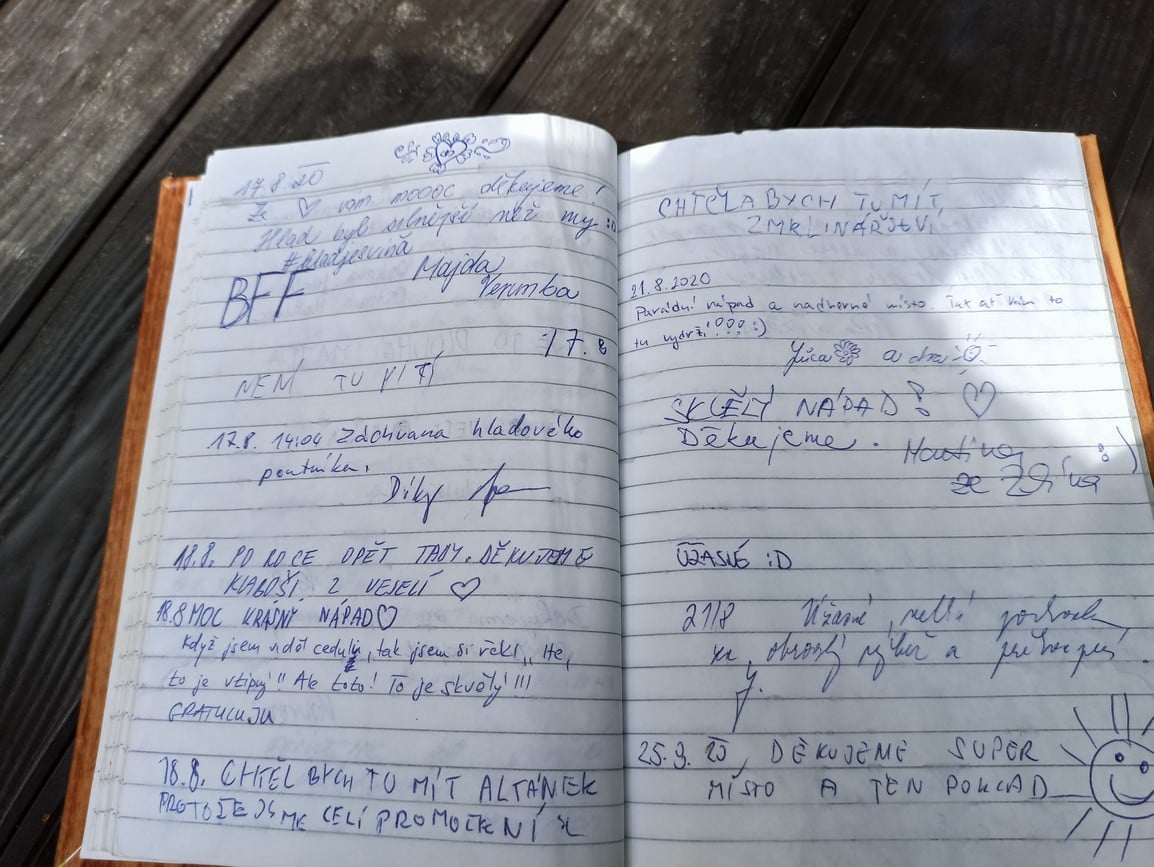 17.8.20
Ze ♡ vám moooc děkujeme!
Hlad byl silnější než my :D
#hladjesviňa
BFF Majda
Verumba
17.8
NENÍ TU PITÍ
17.8. 14:04 Záchrana hladového
poutníka.
Díky
18.8. PO ROCE OPĚT TADY. DĚKUJEME
KLABOŠI Z VESELÍ ♡
18.8 MOC KRÁSNÝ NÁPAD ♡
Když jsem viděl ceduli, tak jsem si řekl „He,
to je vtipný!! Ale toto! To je skvělý!!!
GRATULUJU
18.8. CHTĚL BYCH TU MÍT ALTÁNEK
PROTOŽE JSME CELÍ PROMOČENÍ
CHTĚLA BYCH TU MÍT
ZMRLINÁŘSTVÍ
21.8.2020
Parádní nápad a nádherné místo. Tak ať vám to
tu vydrží!!!! :)
a
SKVĚLÝ NÁPAD! ♡
Děkujeme. Martina
ze Zlína :)
ÚŽASNÉ :D
21/8 Úžasné,
obrovský výběr a
25.9. 20, DĚKUJEME SUPER
MÍSTO A TEN POHLAD